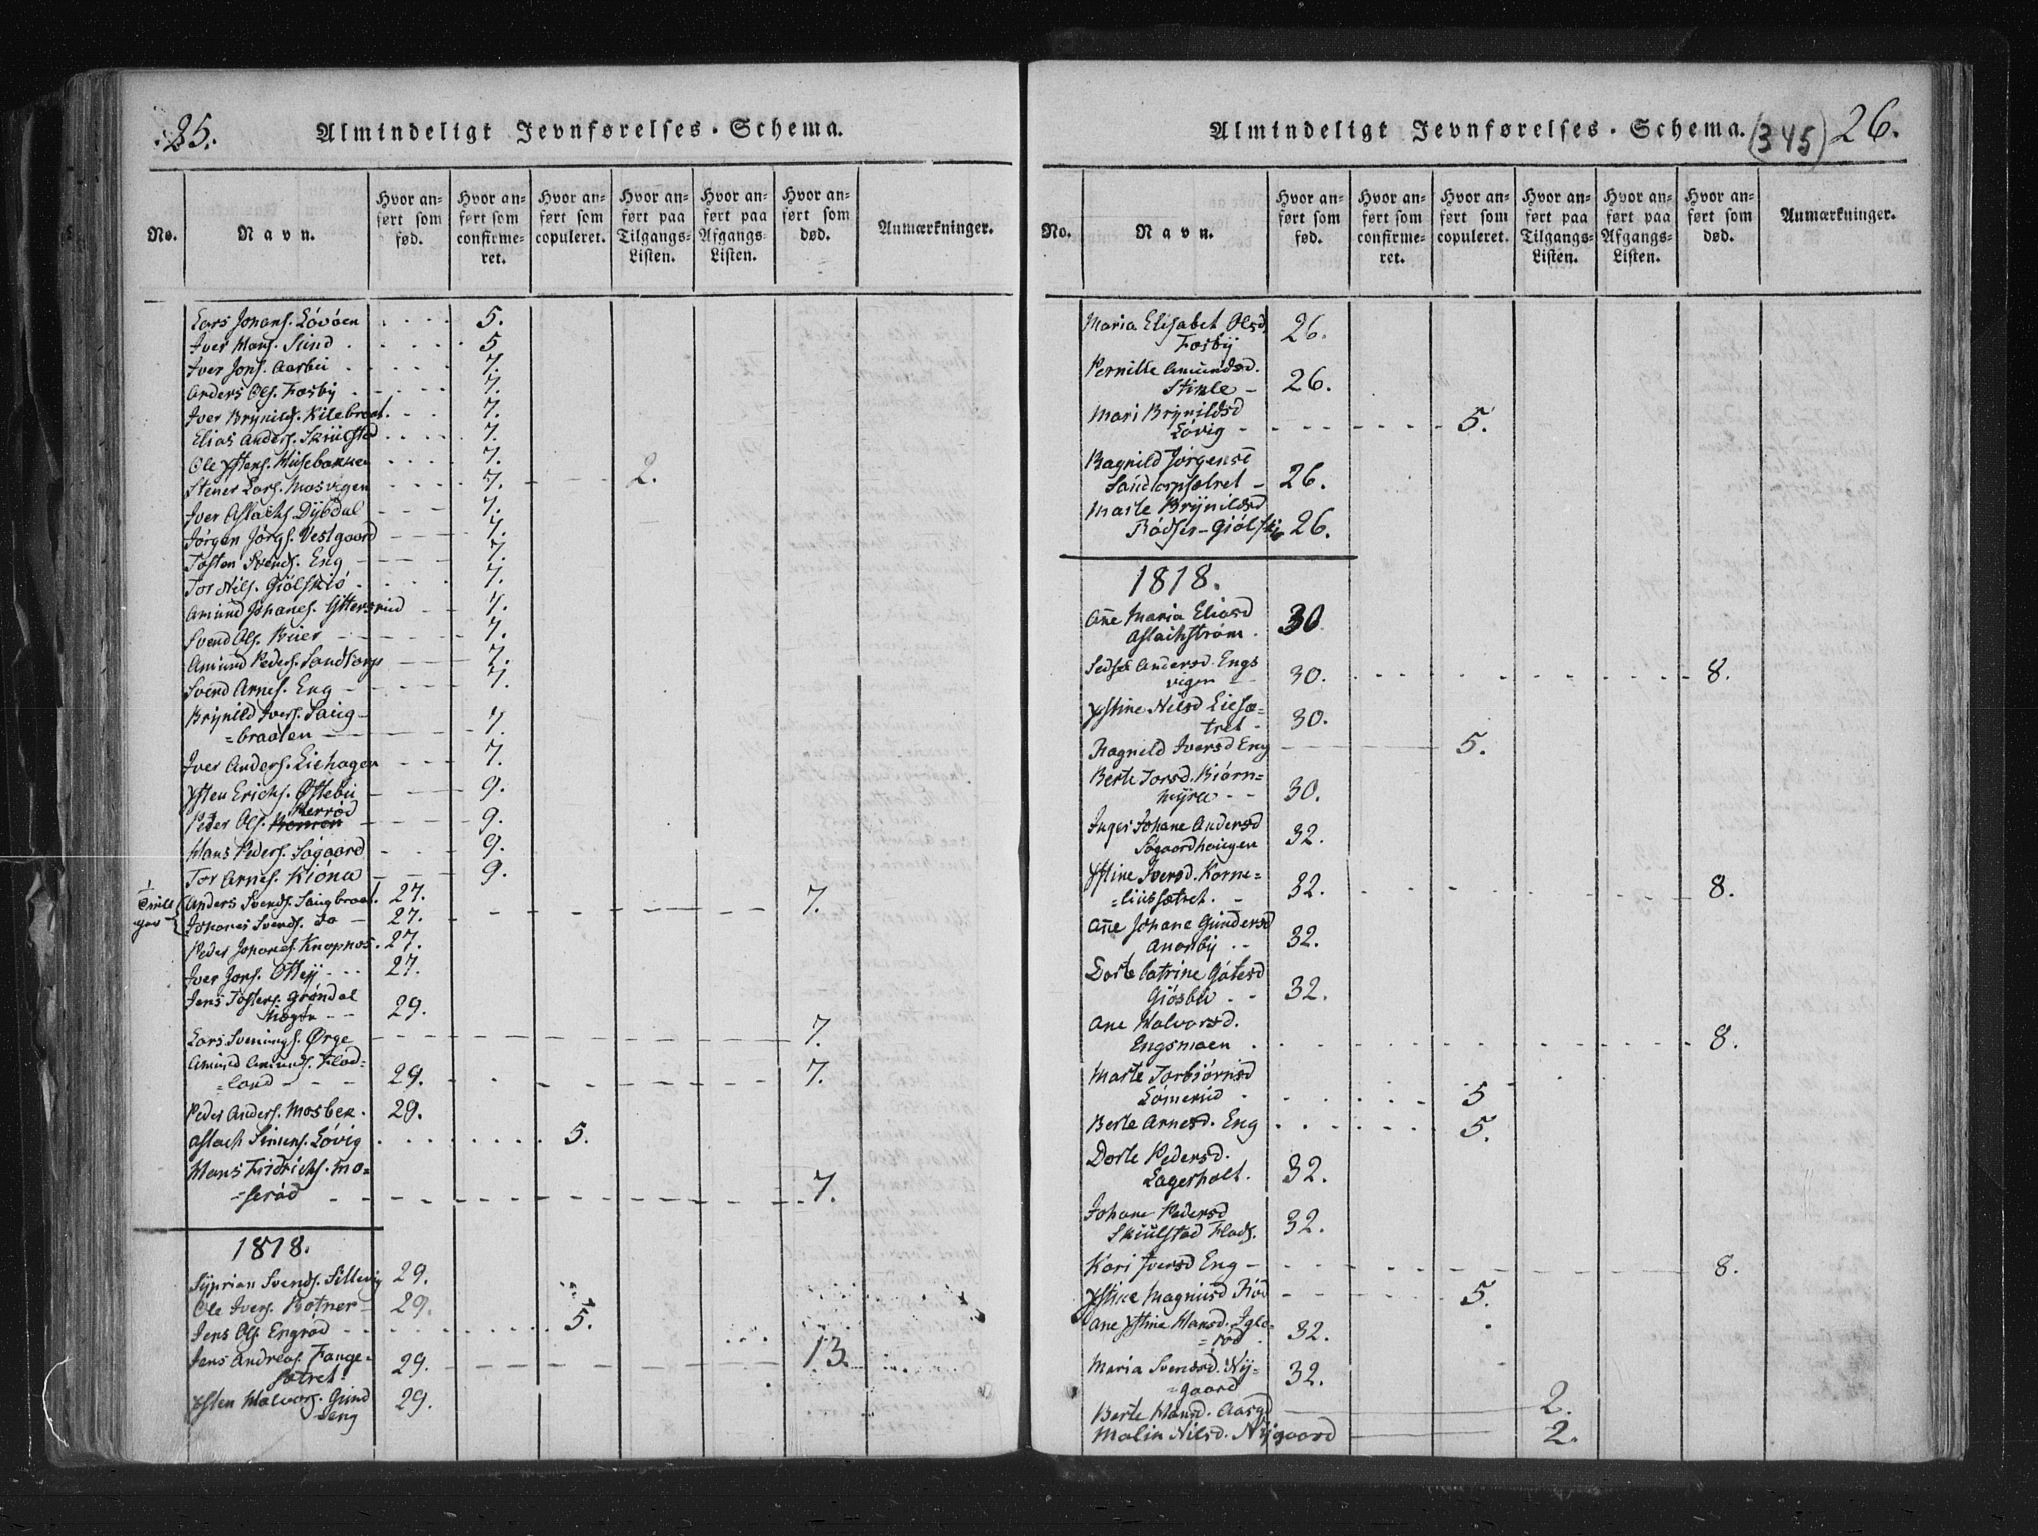 25.
Almindeligt Jevnførelses-Schema.
No.
Navn.
Hvor an-
ført som
fød.
Hvor an-
ført som
confirme-
ret.
Hvor an-
ført som
copuleret.
Hvor an-
ført paa
Tilgangs-
Listen.
Hvor an-
ført paa
Afgangs-
Listen.
Hvor an-
ført som
død.
Anmærkninger.
Lars Johans. Lövöen 5.
Iver Hans. Sund 5
Iver Jons. Aarbu 7.
Anders Ols. Fosby 7.
Iver Brynilds. Kilebraat. 7.
Elias Anders. Skiulstad 7.
Ole Ystens. Husebakken 7.
Stener Lars. Mosvigen 7. 2.
Iver Aslachs. Dybdal 7.
Jørgen Jörgs. Vestgaard 7.
Tosten Svends. Eng 7.
Tor Nils. Giölskiö 7.
Amund Johanes. Yttersrud 7.
Svend Ols. Buer 7.
Amund Peders. Sandtorp 7.
Svend Arnes. Eng 7.
Brynild Ivers. Saug-
=braaten 7.
Iver Anders. Liehagen 7.
Ysten Erichs. Østebu 9.
Herröd
Peder Ols. 9.
Hans Peders. Sogaard 9.
Tor Arnes. Kiöna 9.
Tvill
ger
Anders Svends. Saugbraat. 27. 7.
Johanes Svends. do 27.
Peder Johanes. Knapnos. 27.
Iver Jons. Ottey 27.
Jens Tostens. Gröndal
29.
Lars Svenungs. Ørge 7.
Amund Amunds. Flad-
=land 29. 7.
Peder Anders. Mosbek. 29.
Aslach Simens. Lövig 5.
Hans Fridrichs. Mo-
=seröd 7.
1818.
Syprian Svends. Sillevig 29.
Ole Ivers. Botner 29.
Jens Ols. Engröd 5.
Jens Andreas. Fange-
sætret 29. 13.
Ysten Halvors. Gund
=seng 29.
Almindeligt Jevnførelses-Schema.
(345)
26.
No.
Navn.
Hvor an-
ført som
fød.
Hvor an-
ført som
confirme-
ret.
Hvor an-
ført som
copuleret.
Hvor an-
ført paa
Tilgangs-
Listen.
Hvor an-
ført paa
Afgangs-
Listen.
Hvor an-
ført som
død.
Anmærkninger.
Maria Elisabet Olsd.
Fosby 26.
Pernille Amundsd.
Stinle 26.
Mari Brynildsd
Lövig 5.
Ragnild Jörgens
Sandtorpsætret 26.
Marte Brynildsd
Rödsei-Giölskiö 26.
1818.
Ane Maria Eliasd
Aslachström 30
Sedse Andersd. Engs
vigen 30. 8.
Ystine Nilsd Liesæ=
tret 30.
Ragnild Iversd Eng 5.
Berte Torsd. Biörn=
myra 30.
Inger Johane Andersd
Sogaardhaugen 32.
Ystine Iversd. Korne=
=liussætret. 32. 8.
Ane Johane Gundersd
Ananby 32.
Dorte Catrine Götesd
Giösbu 32.
Ane Halvorsd.
Engsmoen 8.
Marte Torbiörnsd
Lömerud 5
Berte Arnesd. Eng 5.
Dorte Pedersd.
Lagerholt. 32.
Johane Pedersd
Skiulstad Flads. 32.
Kari Iversd Eng 8.
Ystine Magnusd Röd 5.
Ane Ystine Hansd. Igle-
=röd 32.
Maria Svendsd. Ny-
=gaard 32.
Berte Hansd. Aasgd 2.
Malin Nilsd. Nygaard 2.